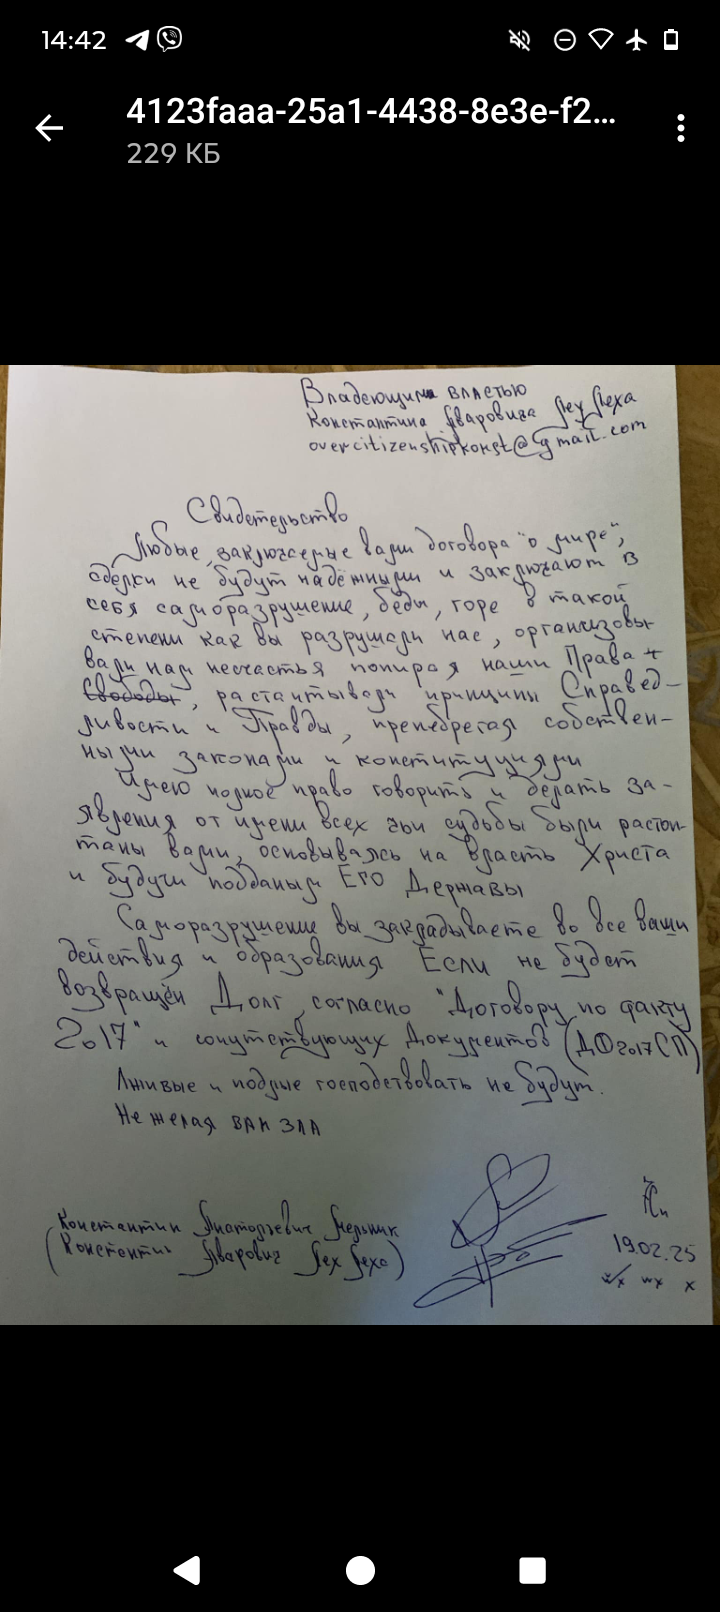 14:42
4123faaa-25a1-4438-8e3e-f2...
229 КБ
Владеющим властью
Константина Аваровича Лех Леха
overcitizenshipkonst@gmail.com
Свидетельство
Любые, заключаемые вами договора "о мире",
сделки не будут надёжными и заключают в
себя саморазрушение, беды, горе в такой
степени как вы разрушали нас, организовы
вали нам несчастья попирая наши Права +
Свободы, растаптывали принципы Справед-
ливости и Правды, пренебрегая собствен-
ными законами и конституциями
Имею полное право говорить и делать за-
явления от имени всех чьи судьбы были растоп-
таны вами, основываясь на власть Христа
и будучи подданым Его Державы
Саморазрушение вы закладываете во все ваши
действия и образования Если не будет
возвращён Долг, согласно "Договору по факту
2017" и сопутствующих Документов (ДФ2017СП)
Лживые и подлые господствовать не будут.
Не желая вам зла
Константин Анатольевич Мельник
(Константин Аварович Лех Леха)
19.02.25